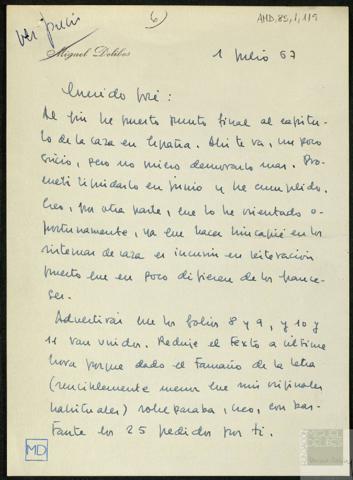 (6)
AMD, 85, 1, 119
Miguel Delibes
1 julio 67
Querido José:
Al fin he puesto punto final al capítu-
lo de la caza en España. Ahí te va, un poco
sucio, pero no quiero demorarlo mas. Pro-
metí liquidarlo en junio y he cumplido.
Creo, por otra parte, que lo he orientado o-
portunamente, ya que hacer hincapié en los
sistemas de caza es incurrir en reiteración
puesto que en poco difieren de los france-
ses.
Advertirás que los folios 8 y 9, y 10 y
11 van unidos. Reduje el texto a última
hora porque dado el tamaño de la letra
(sensiblemente menor que mis originales
habituales) sobrepasaba, creo, con bas-
tante los 25 pedidos por ti.
MD